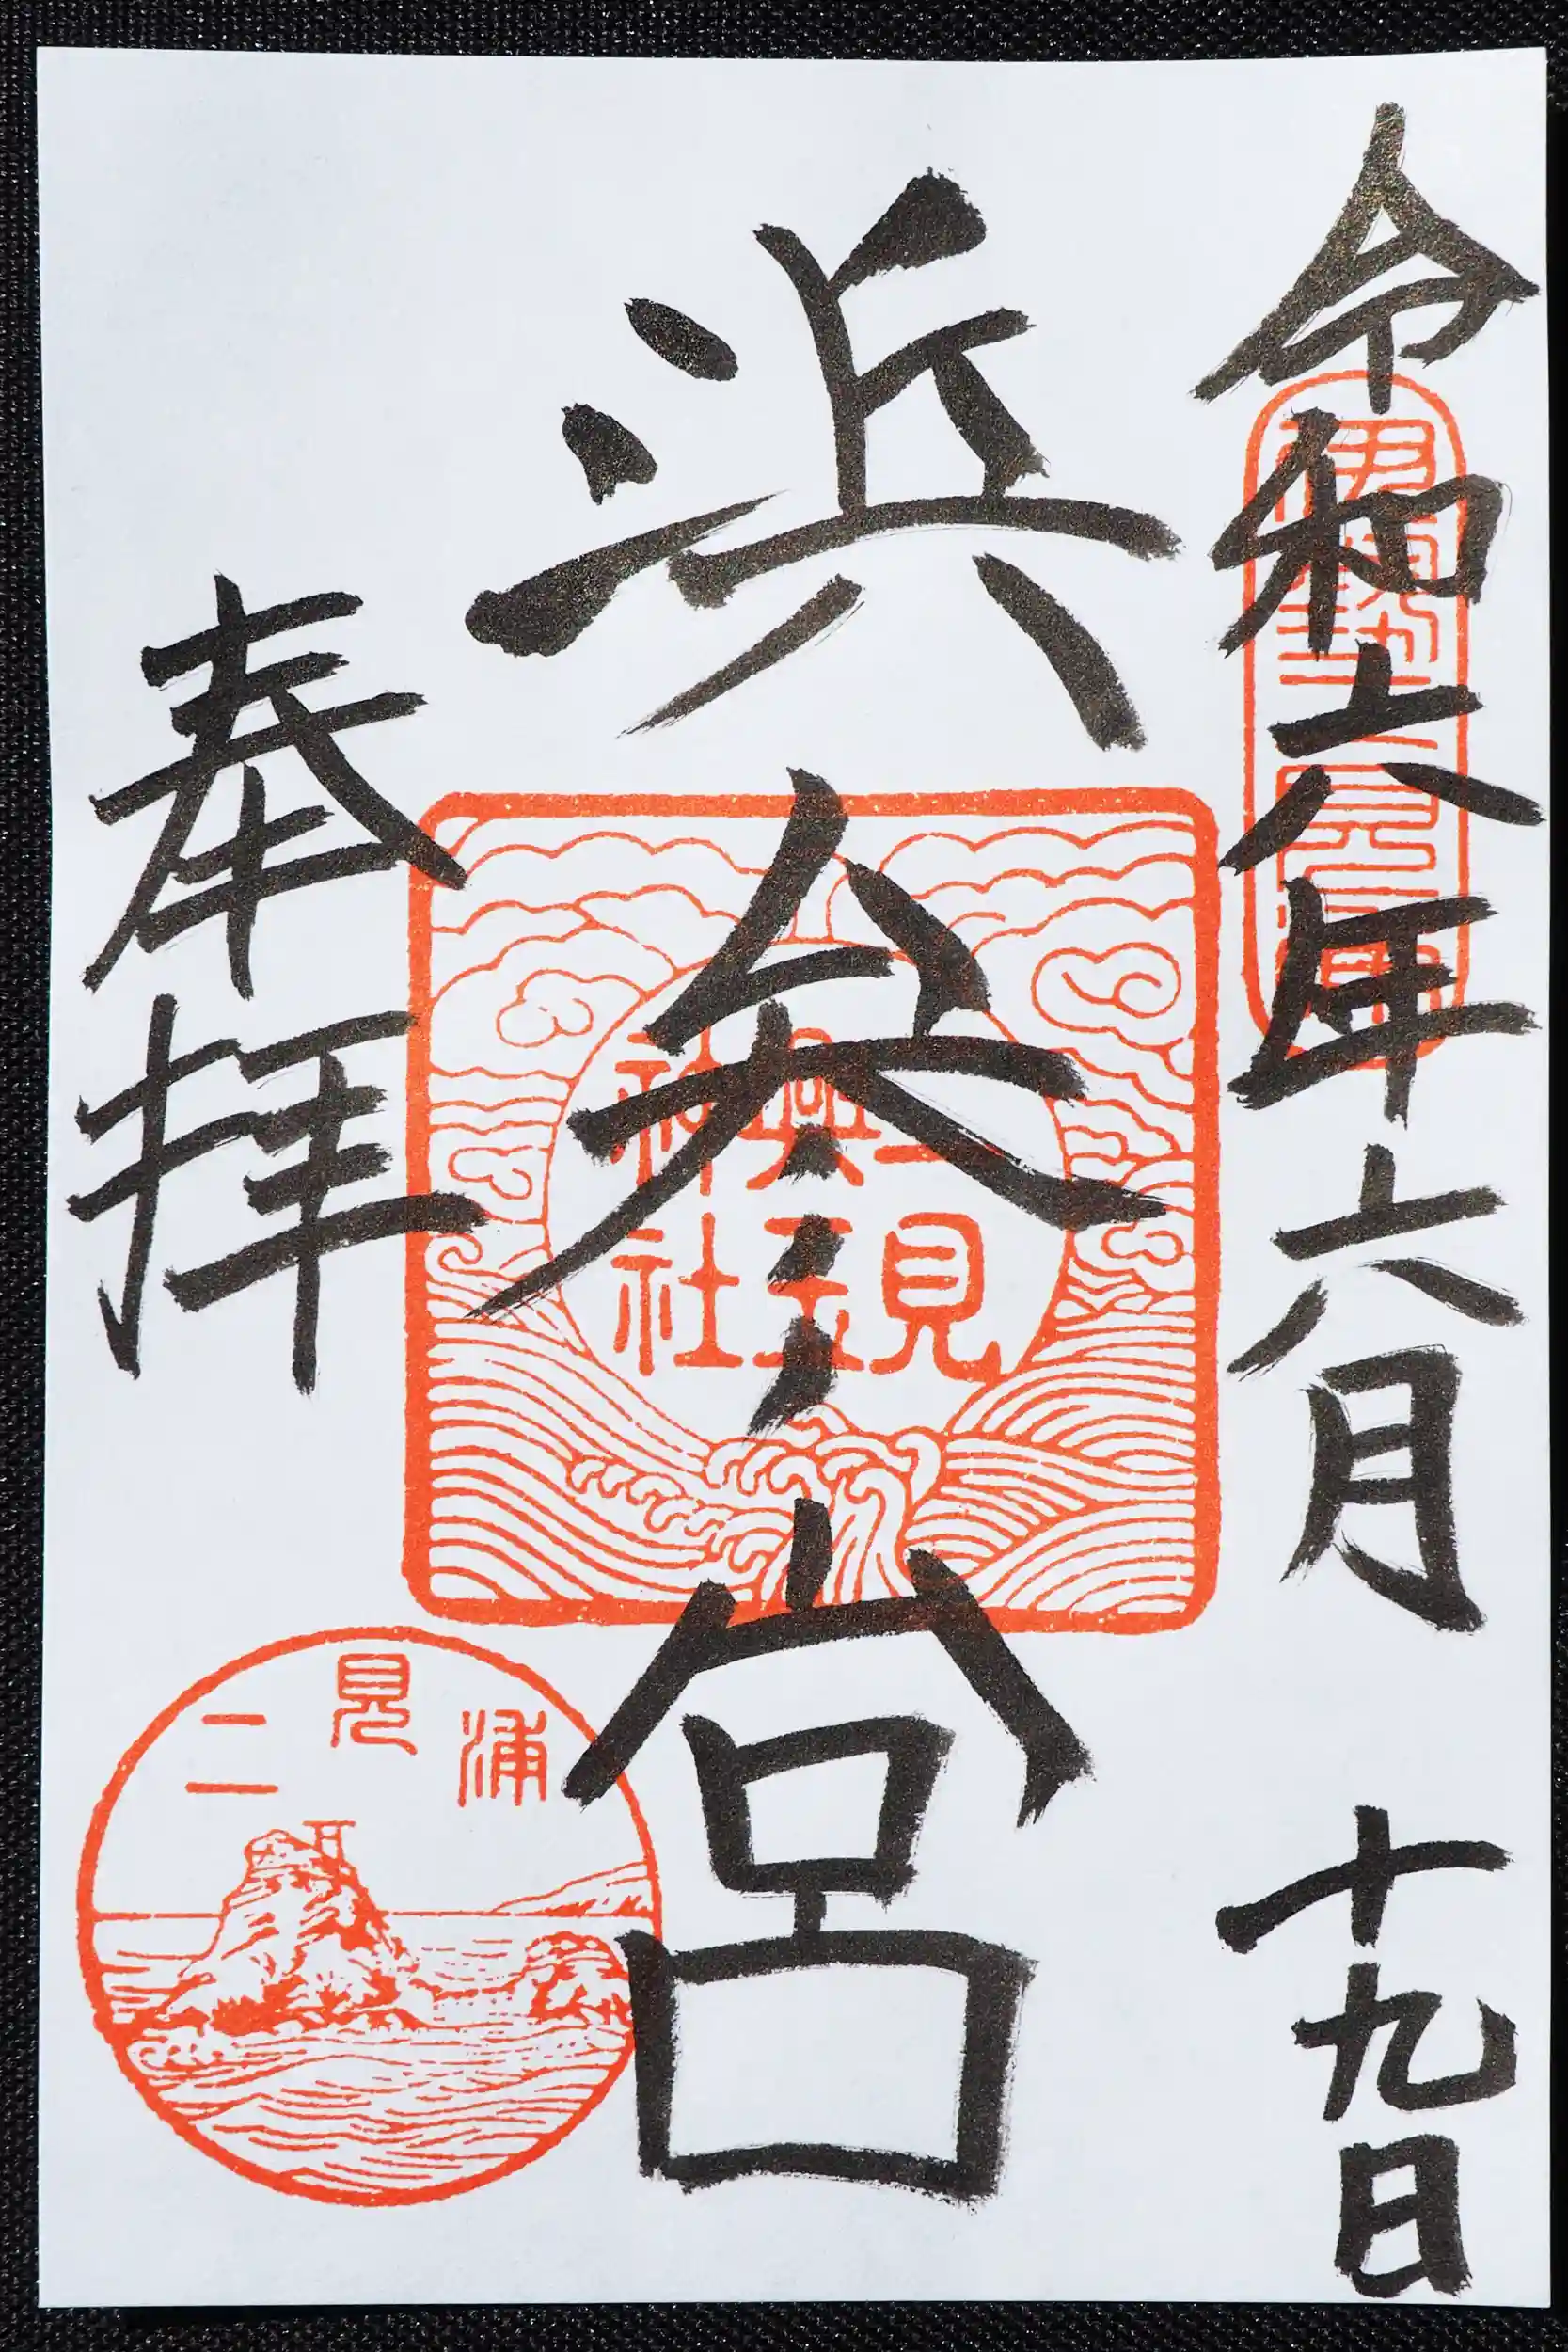 令和六年六月十九日
伊勢二見浦
浜参宮
二見
興玉
神社
奉拝
二見浦